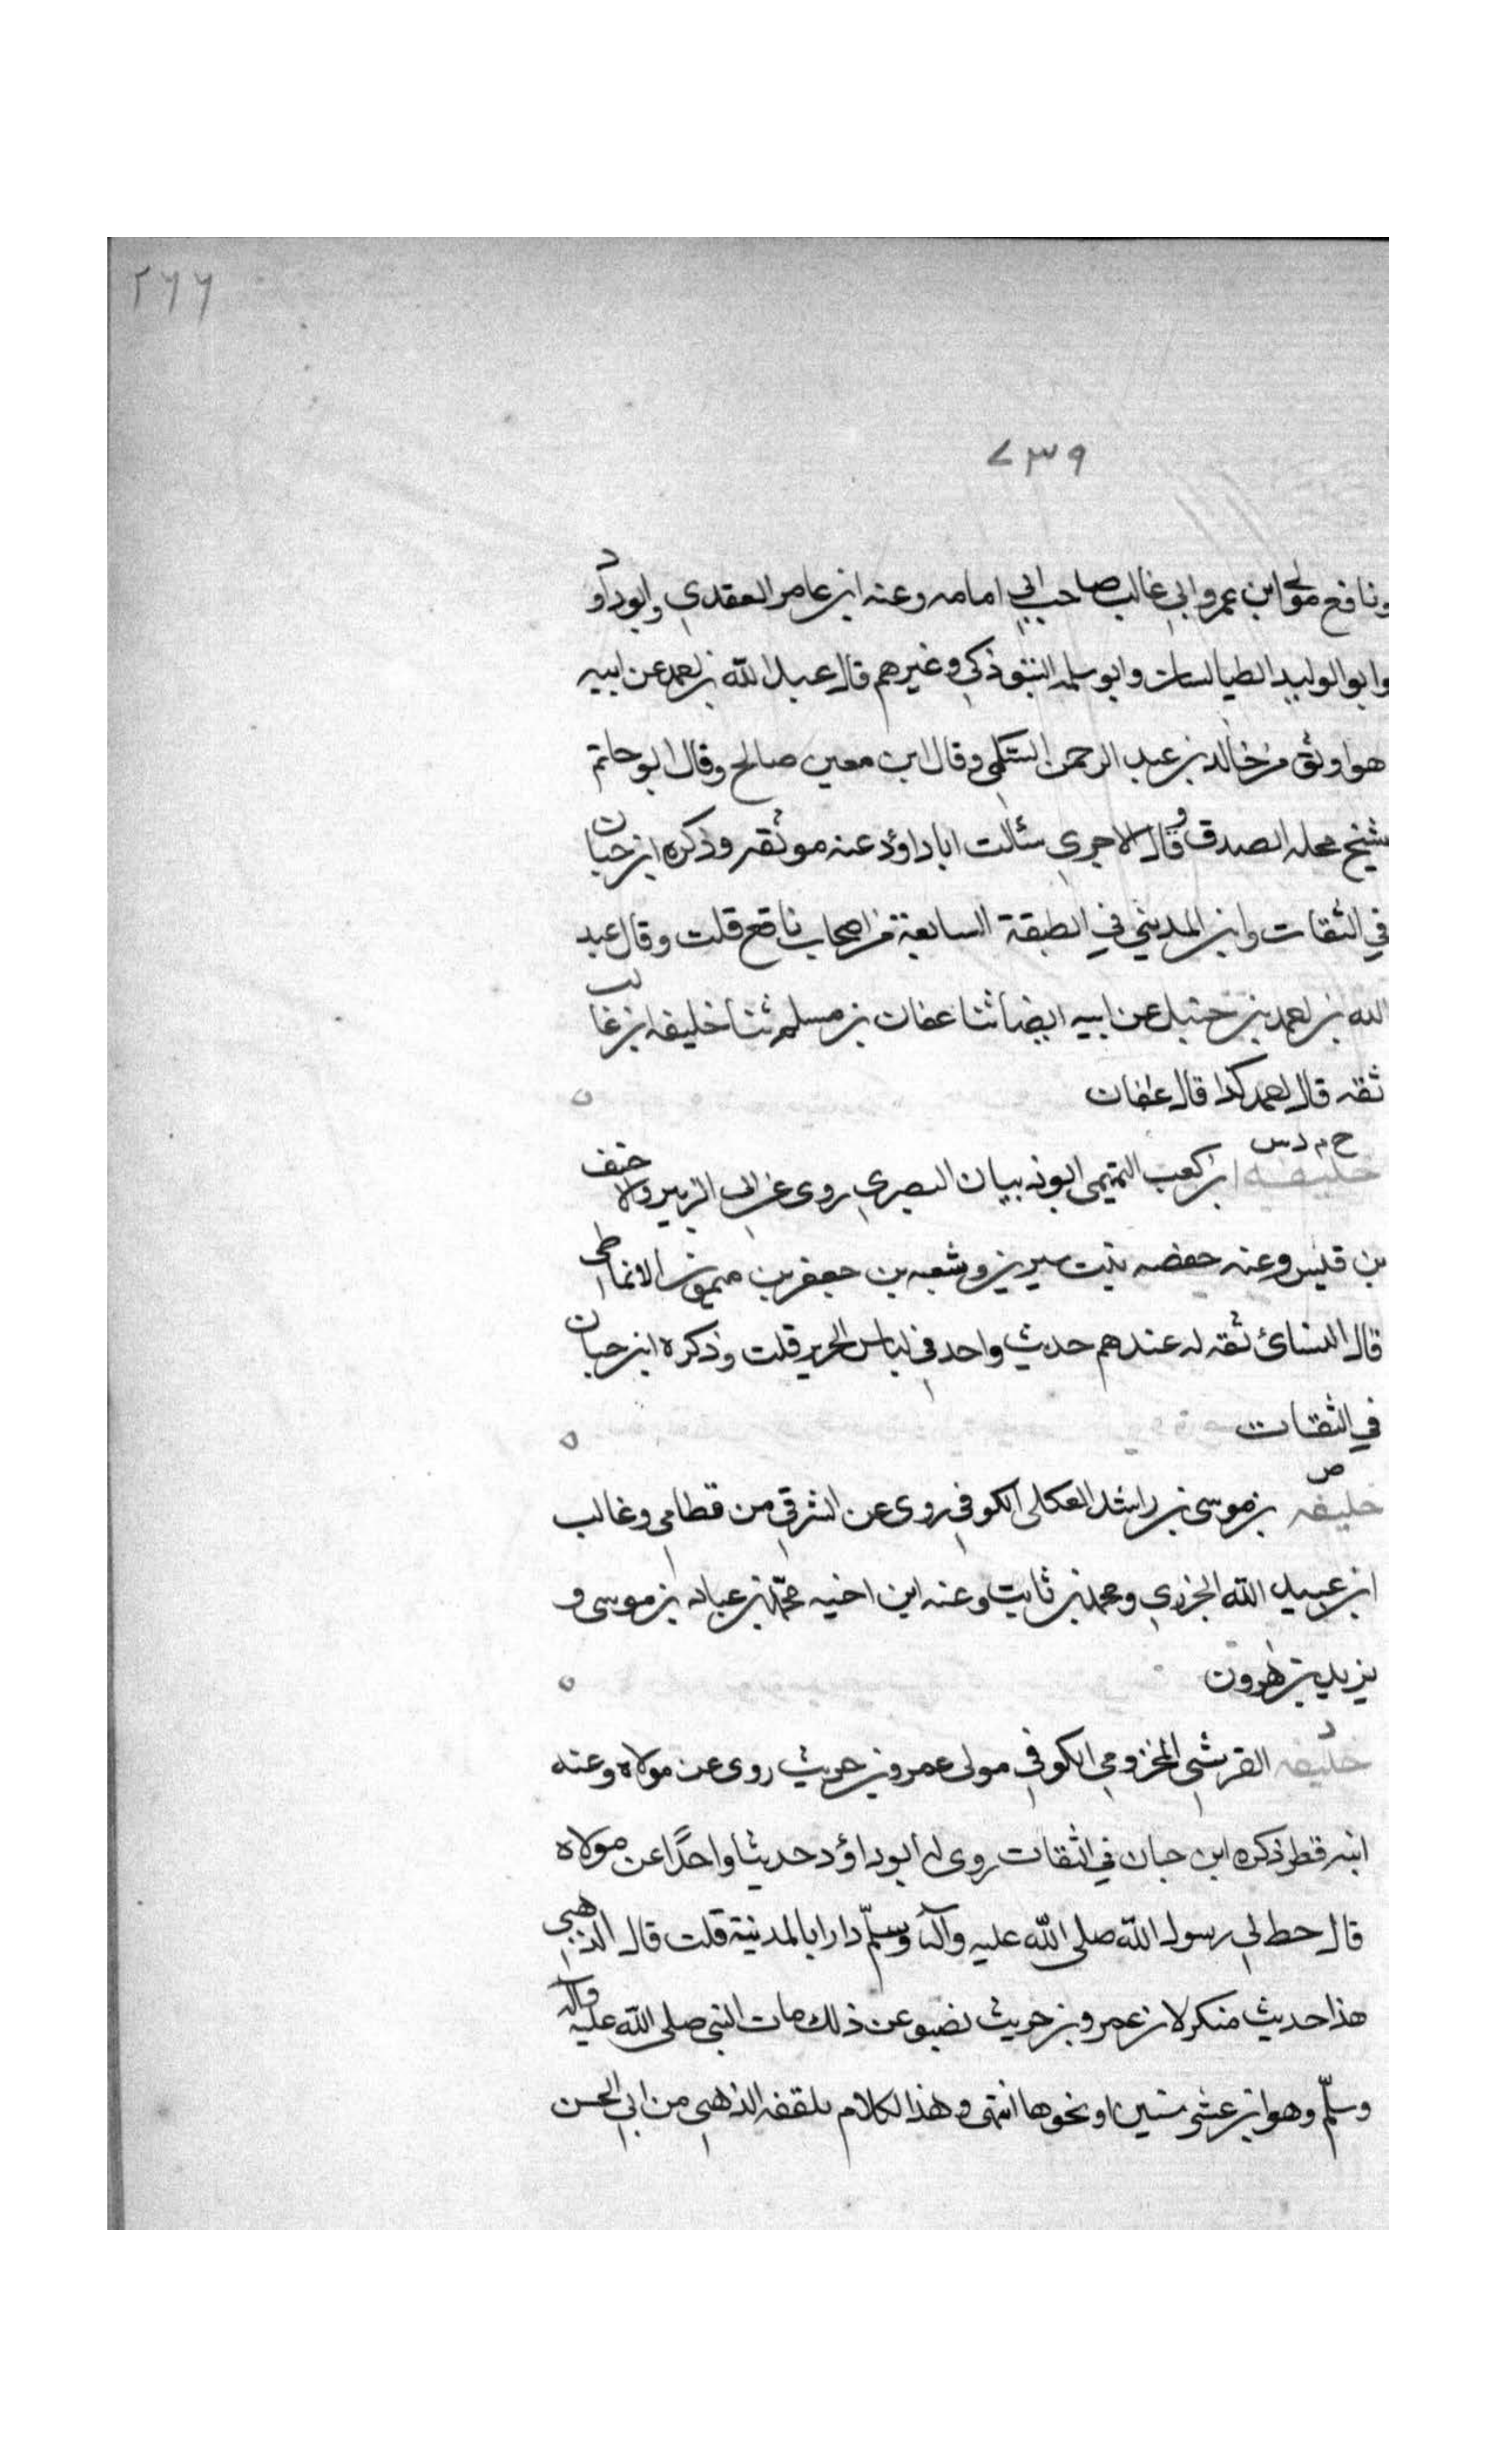 ٢٦٦
٧٣٩
ونافع مولى ابن عمر وابي غالب صاحب ابي امامه وعنه ابن عامر العقدي وابو داود
وابو الوليد الطيالسان وابو سلمه التبوذكي وغيرهم قال عبد الله بن احمد عن ابيه
هو اوثق من خالد بن عبد الرحمن السلمي وقال ابن معين صالح وقال ابو حاتم
شيخ محله الصدق وقال الاجري سئالت ابا داؤد عنه موثقه وذكره ابن حبان
في الثقات وابن المديني في الطبقة السابعة من اصحاب نافع قلت وقال عبد
الله بن احمد بن حنبل عن ابيه ايضا ثنا عفان بن مسلم ثنا خليفه ابن غالب
ثقه قال احمد كذا قال عفان
خ م د س
خليفه ابن كعب التميمي ابو ذبيان البصري روى عن ابن الزبير والاحنف
بن قيس وعنه حفصه بنت سيرين وشعبه بن جعفر بن ميمون الانماطي
قال النسائ ثقه له عندهم حديث واحد في لباس الحرير قلت وذكره ابن حبان
في الثقات
ص
خليفه بن موسى بن راشد العكلي الكوفي روى عن الشرقي من قطامي وغالب
ابن عبيد الله الجزري ومحمد بن ثابت وعنه ابن اخيه محمد بن عباد بن موسى و
يزيد بن هرون
د
خليفه القرشي المخزومي الكوفي مولى عمرو بن حريث روى عن مولاه وعنه
ابنه فطر ذكره ابن حبان في الثقات روى له ابو داؤد حديثا واحدًا عن مولاه
قال خط لي رسول الله صلى الله عليه وآله وسلّم دارا بالمدينة قلت قال الذهبي
هذا حديث منكر لان عمرو بن حريث يصبو عن ذلك مات النبي صلى الله عليه وآله
وسلّم وهو ابن عشر سنين او نحوها انتهى وهذا الكلام تلقفه الذهبي من ابي الحسن